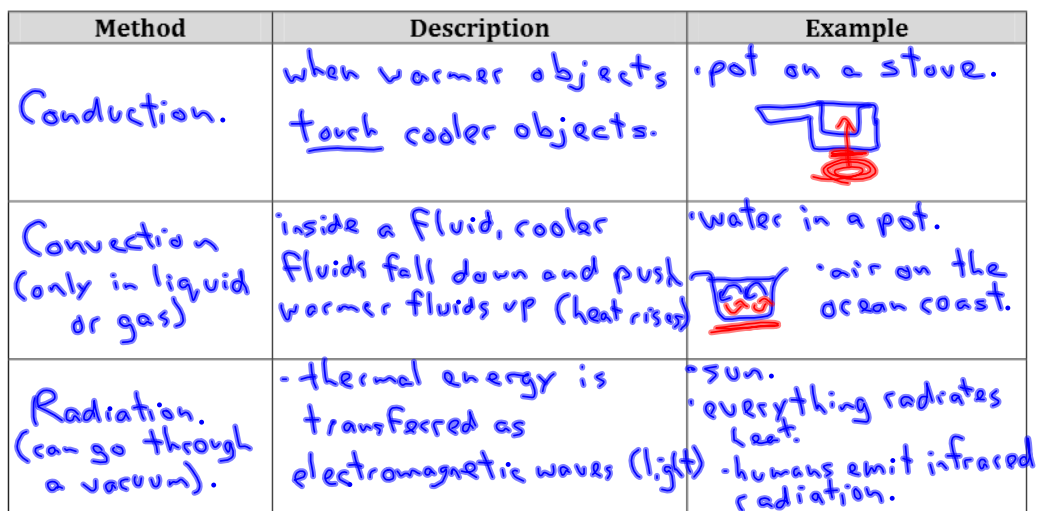 Method Description Example
Conduction.
when warmer objects
touch cooler objects.
·pot on a stove.
Convection
(only in liquid
or gas)
·inside a fluid, cooler
fluids fall down and push
warmer fluids up (heat rises)
·water in a pot.
·air on the
ocean coast.
Radiation.
(can go through
a vacuum).
-thermal energy is
transferred as
electromagnetic waves (light)
-sun.
·everything radiates
heat.
-humans emit infrared
radiation.